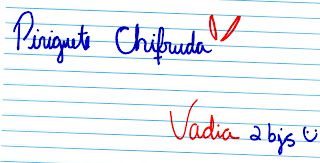 Piriguete Chifruda
Vadia 2 bjs